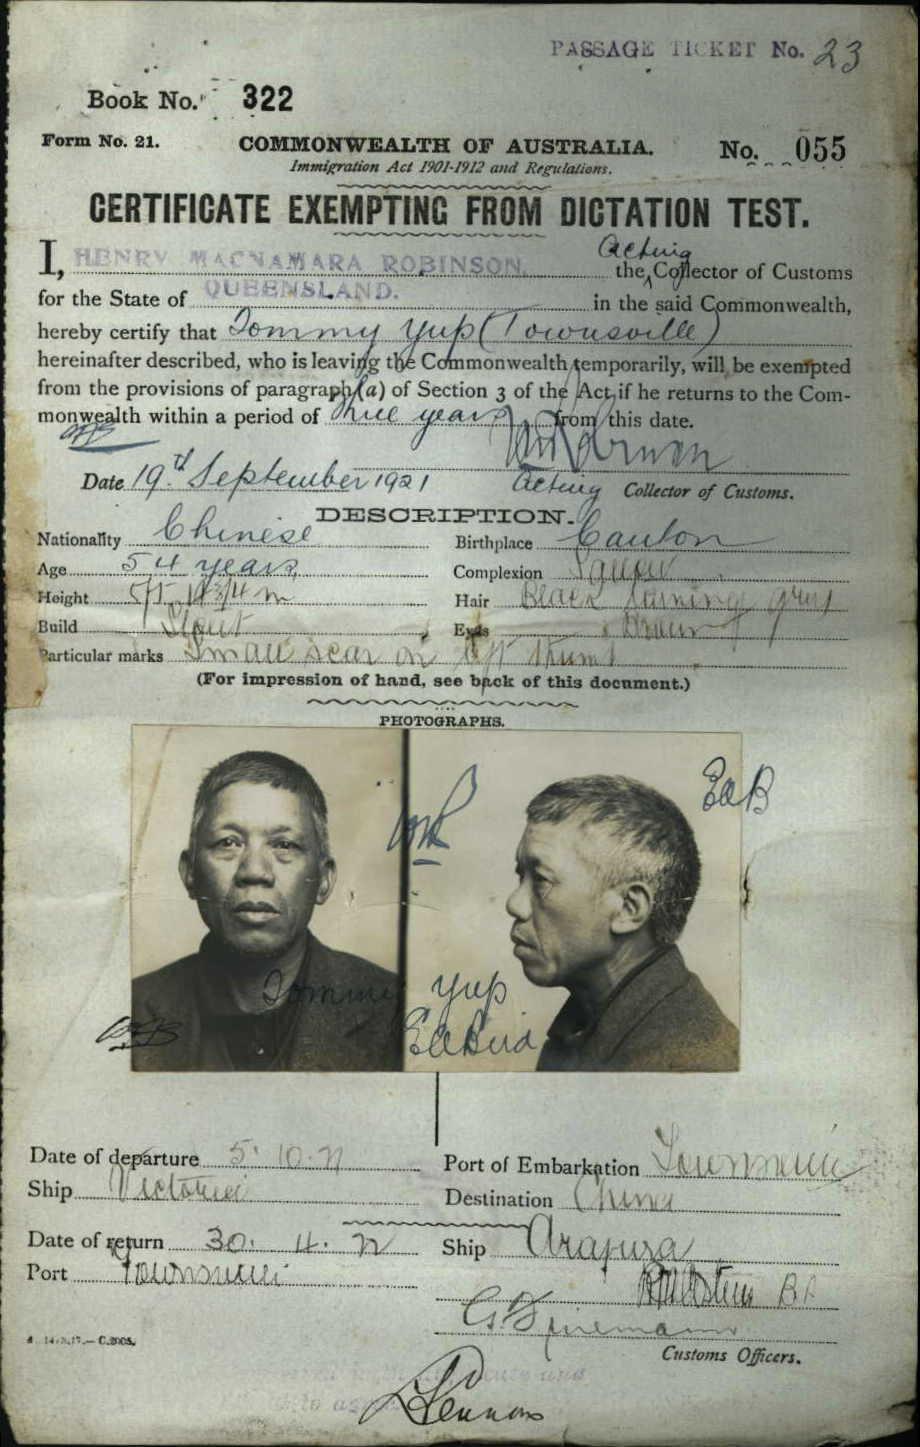 PASSAGE TICKET No. 23
Book No. 322
Form No. 21. COMMONWEALTH OF AUSTRALIA. No. 055
Immigration Act 1901-1912 and Regulations.
CERTIFICATE EXEMPTING FROM DICTATION TEST.
I, HENRY MACNAMARA ROBINSON, the Acting Collector of Customs
for the State of QUEENSLAND. in the said Commonwealth,
hereby certify that Tommy Yup (Townsville)
hereinafter described, who is leaving the Commonwealth temporarily, will be exempted
from the provisions of paragraph (a) of Section 3 of the Act if he returns to the Com-
monwealth within a period of three years from this date.
Date 19th September 1921 Acting Collector of Customs.
DESCRIPTION.
Nationality Chinese Birthplace Canton
Age 54 years Complexion Sallow
Height 5ft Hair Black turning grey
Build Stout Eyes Brown
Particular marks Small scar on left thumb
(For impression of hand, see back of this document.)
PHOTOGRAPHS.
Tommy Yup
Date of departure 5. 10. Port of Embarkation Townsville
Ship Victoria Destination China
Date of return 30. 4. Ship Arafura
Port Townsville
Customs Officers.